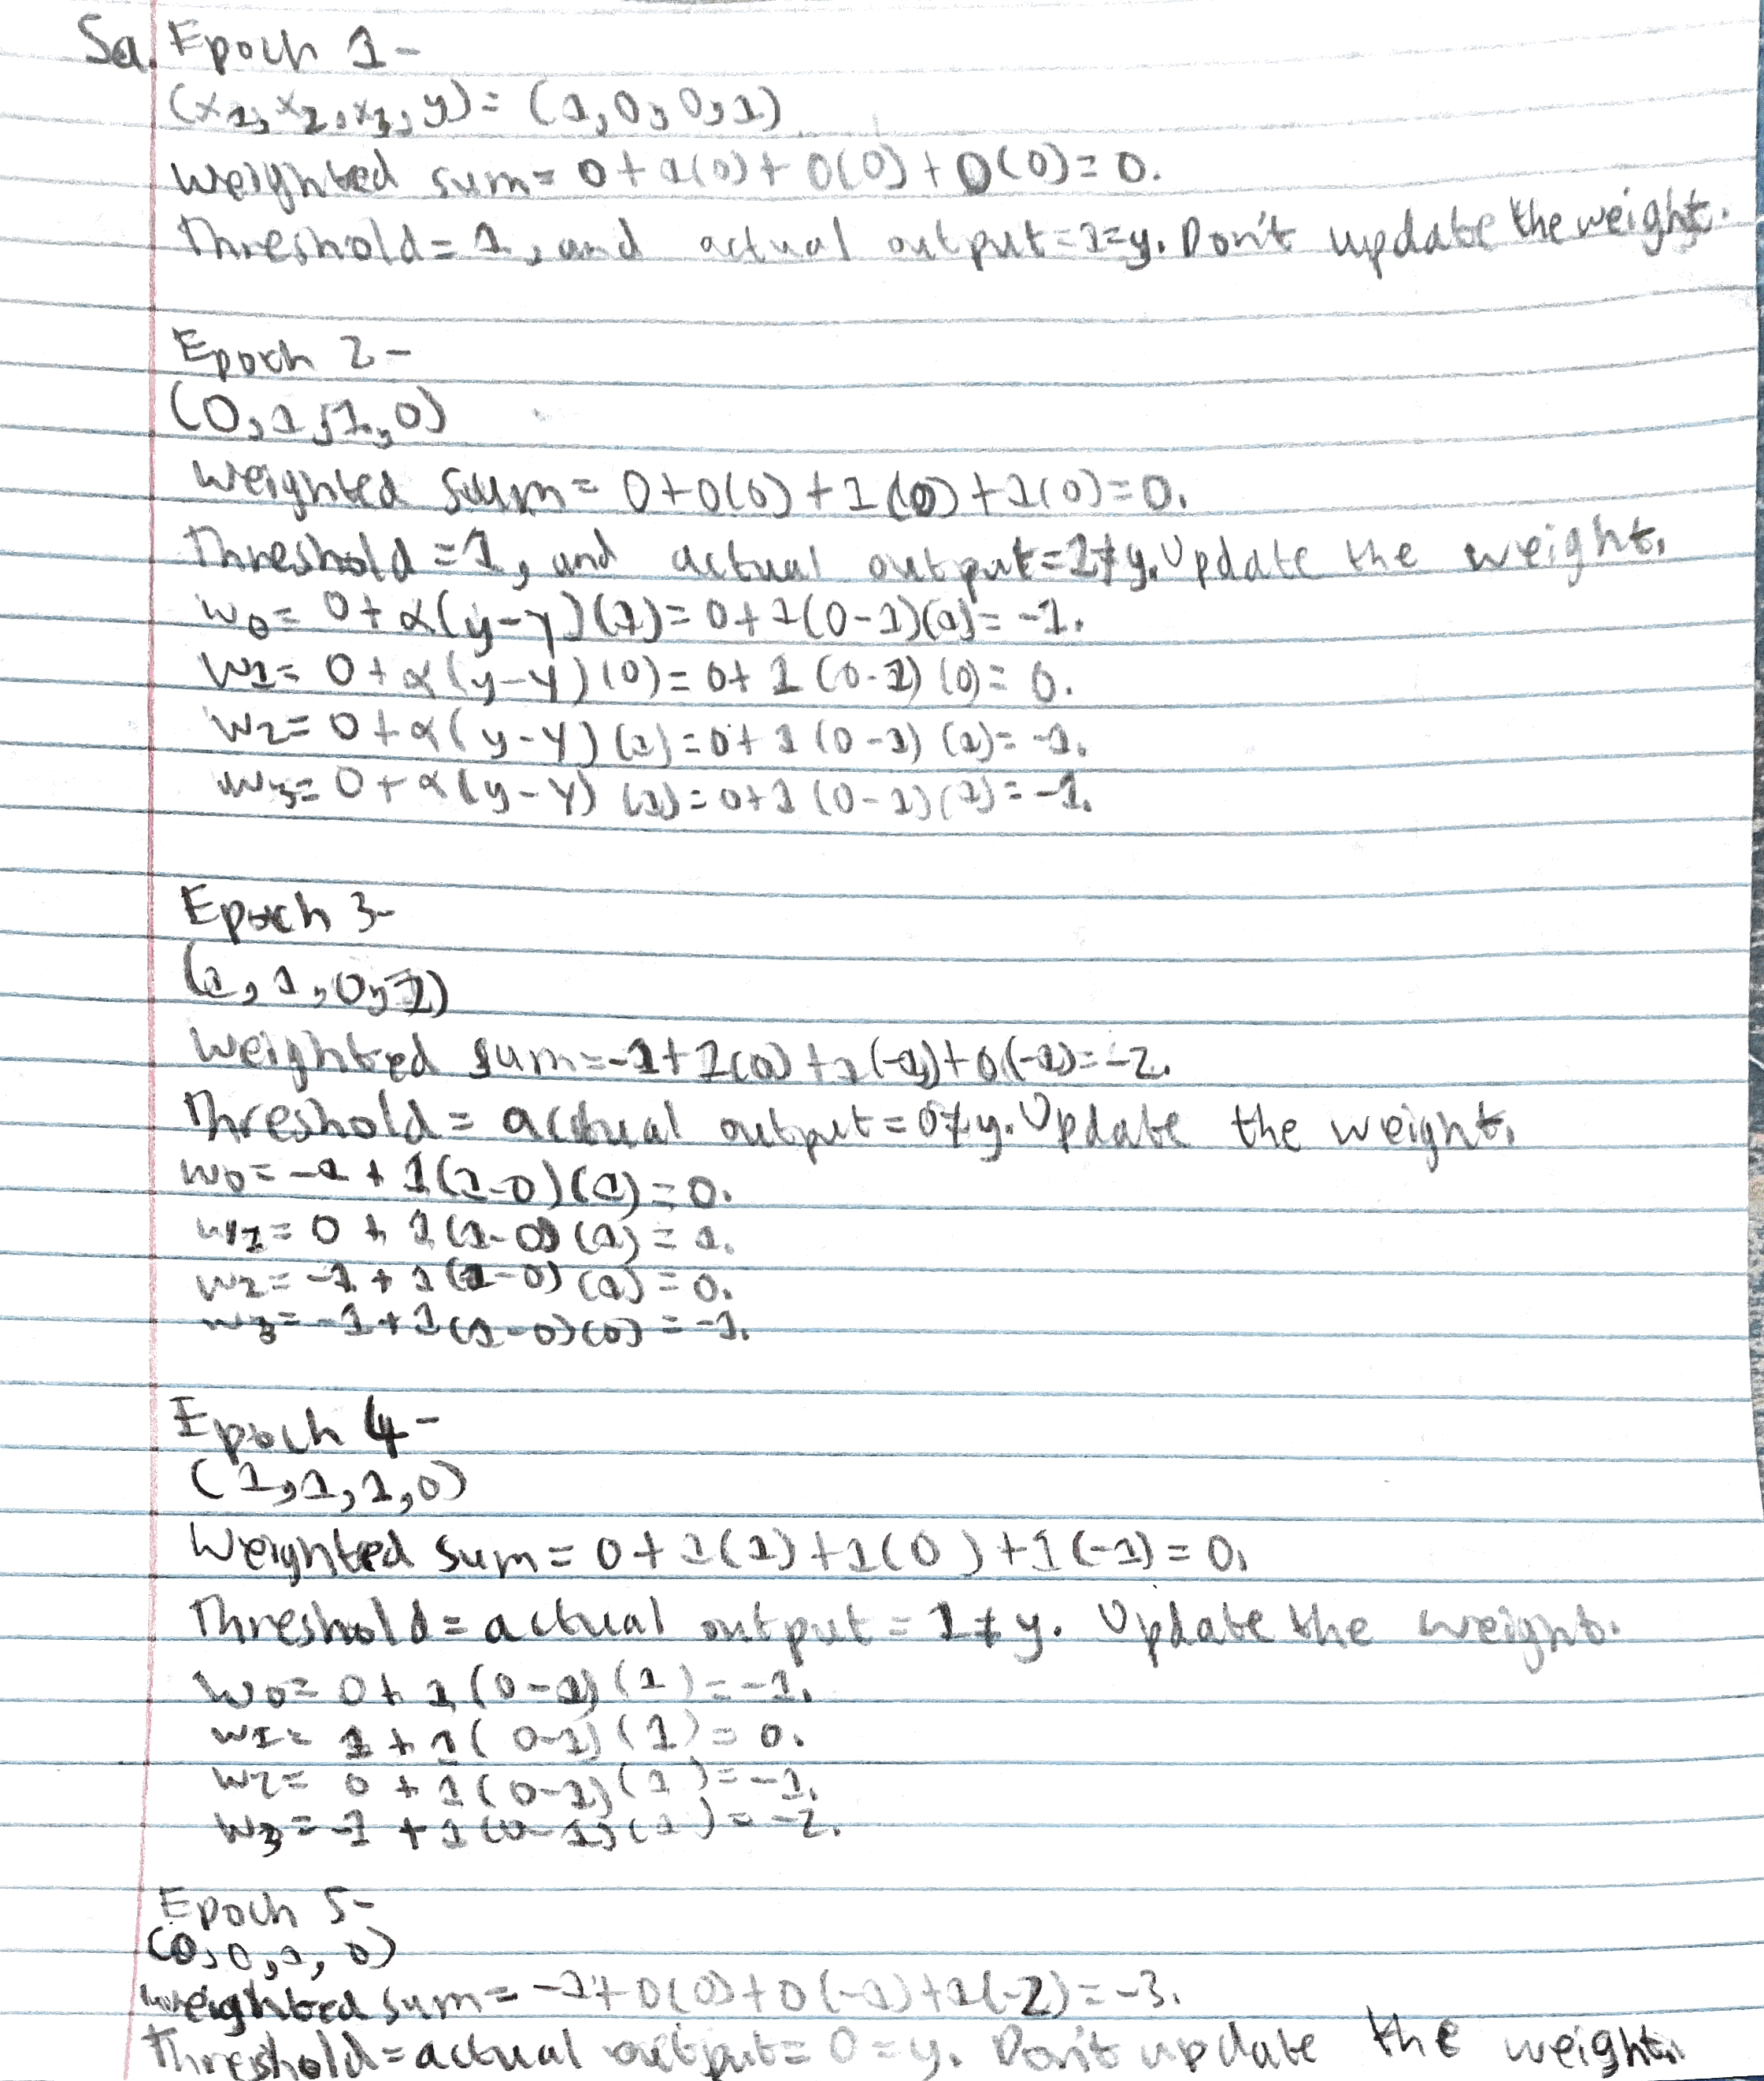 5a. Epoch 1-
(x1, x2, x3, y) = (1, 0, 0, 1)
Weighted sum = 0 + 1(0) + 0(0) + 0(0) = 0.
Threshold = 1, and actual output = 1 = y. Don't update the weight.
Epoch 2-
(0, 1, 1, 0)
Weighted sum = 0 + 0(0) + 1(0) + 1(0) = 0.
Threshold = 1, and actual output = 1 ≠ y. Update the weight.
w0 = 0 + α(y-Y)(1) = 0 + 1(0-1)(1) = -1.
w1 = 0 + α(y-Y)(0) = 0 + 1(0-1)(0) = 0.
w2 = 0 + α(y-Y)(1) = 0 + 1(0-1)(1) = -1.
w3 = 0 + α(y-Y)(1) = 0 + 1(0-1)(1) = -1.
Epoch 3-
(1, 1, 0, 1)
Weighted sum = -1 + 1(0) + 1(-1) + 0(-1) = -2.
Threshold = actual output = 0 ≠ y. Update the weight.
w0 = -1 + 1(1-0)(1) = 0.
w1 = 0 + 1(1-0)(1) = 1.
w2 = -1 + 1(1-0)(1) = 0.
w3 = -1 + 1(1-0)(0) = -1.
Epoch 4-
(1, 1, 1, 0)
Weighted sum = 0 + 1(1) + 1(0) + 1(-1) = 0.
Threshold = actual output = 1 ≠ y. Update the weight.
w0 = 0 + 1(0-1)(1) = -1.
w1 = 1 + 1(0-1)(1) = 0.
w2 = 0 + 1(0-1)(1) = -1.
w3 = -1 + 1(0-1)(1) = -2.
Epoch 5-
(0, 0, 1, 0)
Weighted sum = -1 + 0(0) + 0(-1) + 1(-2) = -3.
Threshold = actual output = 0 = y. Don't update the weight.